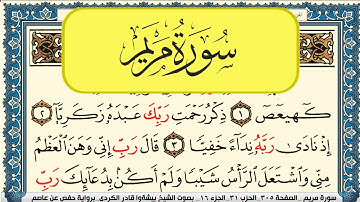 سورة مريم
كهيعص ١ ذكر رحمت ربك عبده زكريا ٢
إذ نادى ربه نداء خفيا ٣ قال رب إني وهن العظم
مني واشتعل الرأس شيبا ولم أكن بدعائك رب
سورة مريم الصفحة ٣٠٥ الحزب ٣١ الجزء ١٦ بصوت الشيخ بيشةوا قادر الكردي برواية حفص عن عاصم